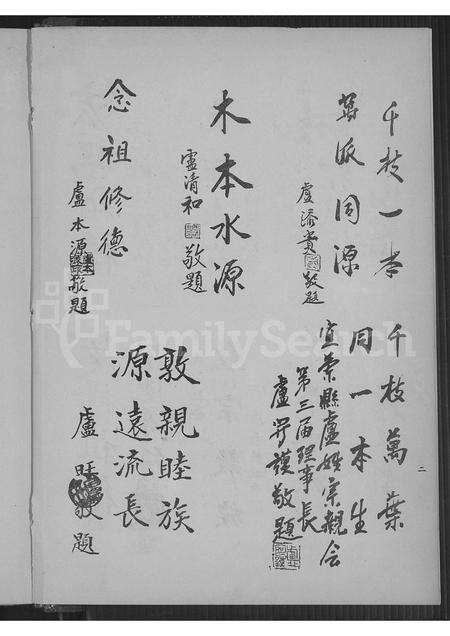 千枝一本
萬派同源
盧添貴敬題
木本水源
盧清和敬題
念祖修德
盧本源敬題
千枝萬葉
同一本生
宜蘭縣盧姓宗親会
第三届理事長
盧
謨敬題
敦親睦族
源遠流長
盧旺
敬題
二
FamilySearch